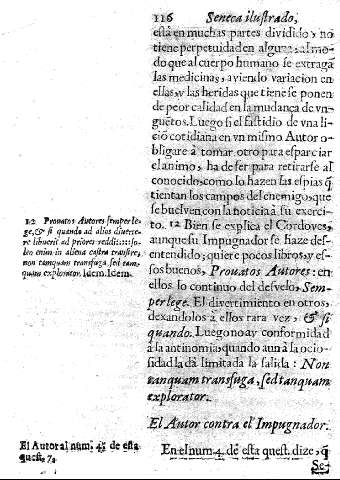 116 Seneca ilustrado,
està en muchas partes dividido, y no
tiene perpetuidad en alguna: al mo-
do que al cuerpo humano se extragã
las medicinas, aviendo variacion en
ellas, y las heridas que tiene se ponen
de peor calidad en la mudança de vn-
guẽtos. Luego si el fastidio de vna li-
ciõ cotidiana en vn mismo Autor o-
bligare à tomar otro para esparciar
el animo, ha de ser para retirarse al
conocido, como lo hazen las espias q̃
tientan los campos del enemigo, que
se buelven con la noticia à su exerci-
to. 12 Bien se explica el Cordoves,
aunque su Impugnador se haze des-
entendido; quiere pocos libros, y es-
sos buenos, Provatos Autores: en
ellos lo continuo del desvelo, Sem-
per lege. El divertimiento en otros,
dexandolos à ellos rara vez, & si
quando. Luego no ay conformidad
à la antinomia, quando aun à la ocio-
sidad la dà limitada la salida: Non
tanquam transfuga, sed tanquam
explorator.
12 Provatos Autores semper le-
ge, & si quando ad alios diverte-
re libuerit ad priores redi: so-
leo enim in aliena castra transire,
non tanquam transfuga, sed tan-
quam explorator. Idem. Idem.
El Autor contra el Impugnador.
El Autor al num. 4. de esta
quest. 7.
En el num. 4. de esta quest. dize, q̃
Se-